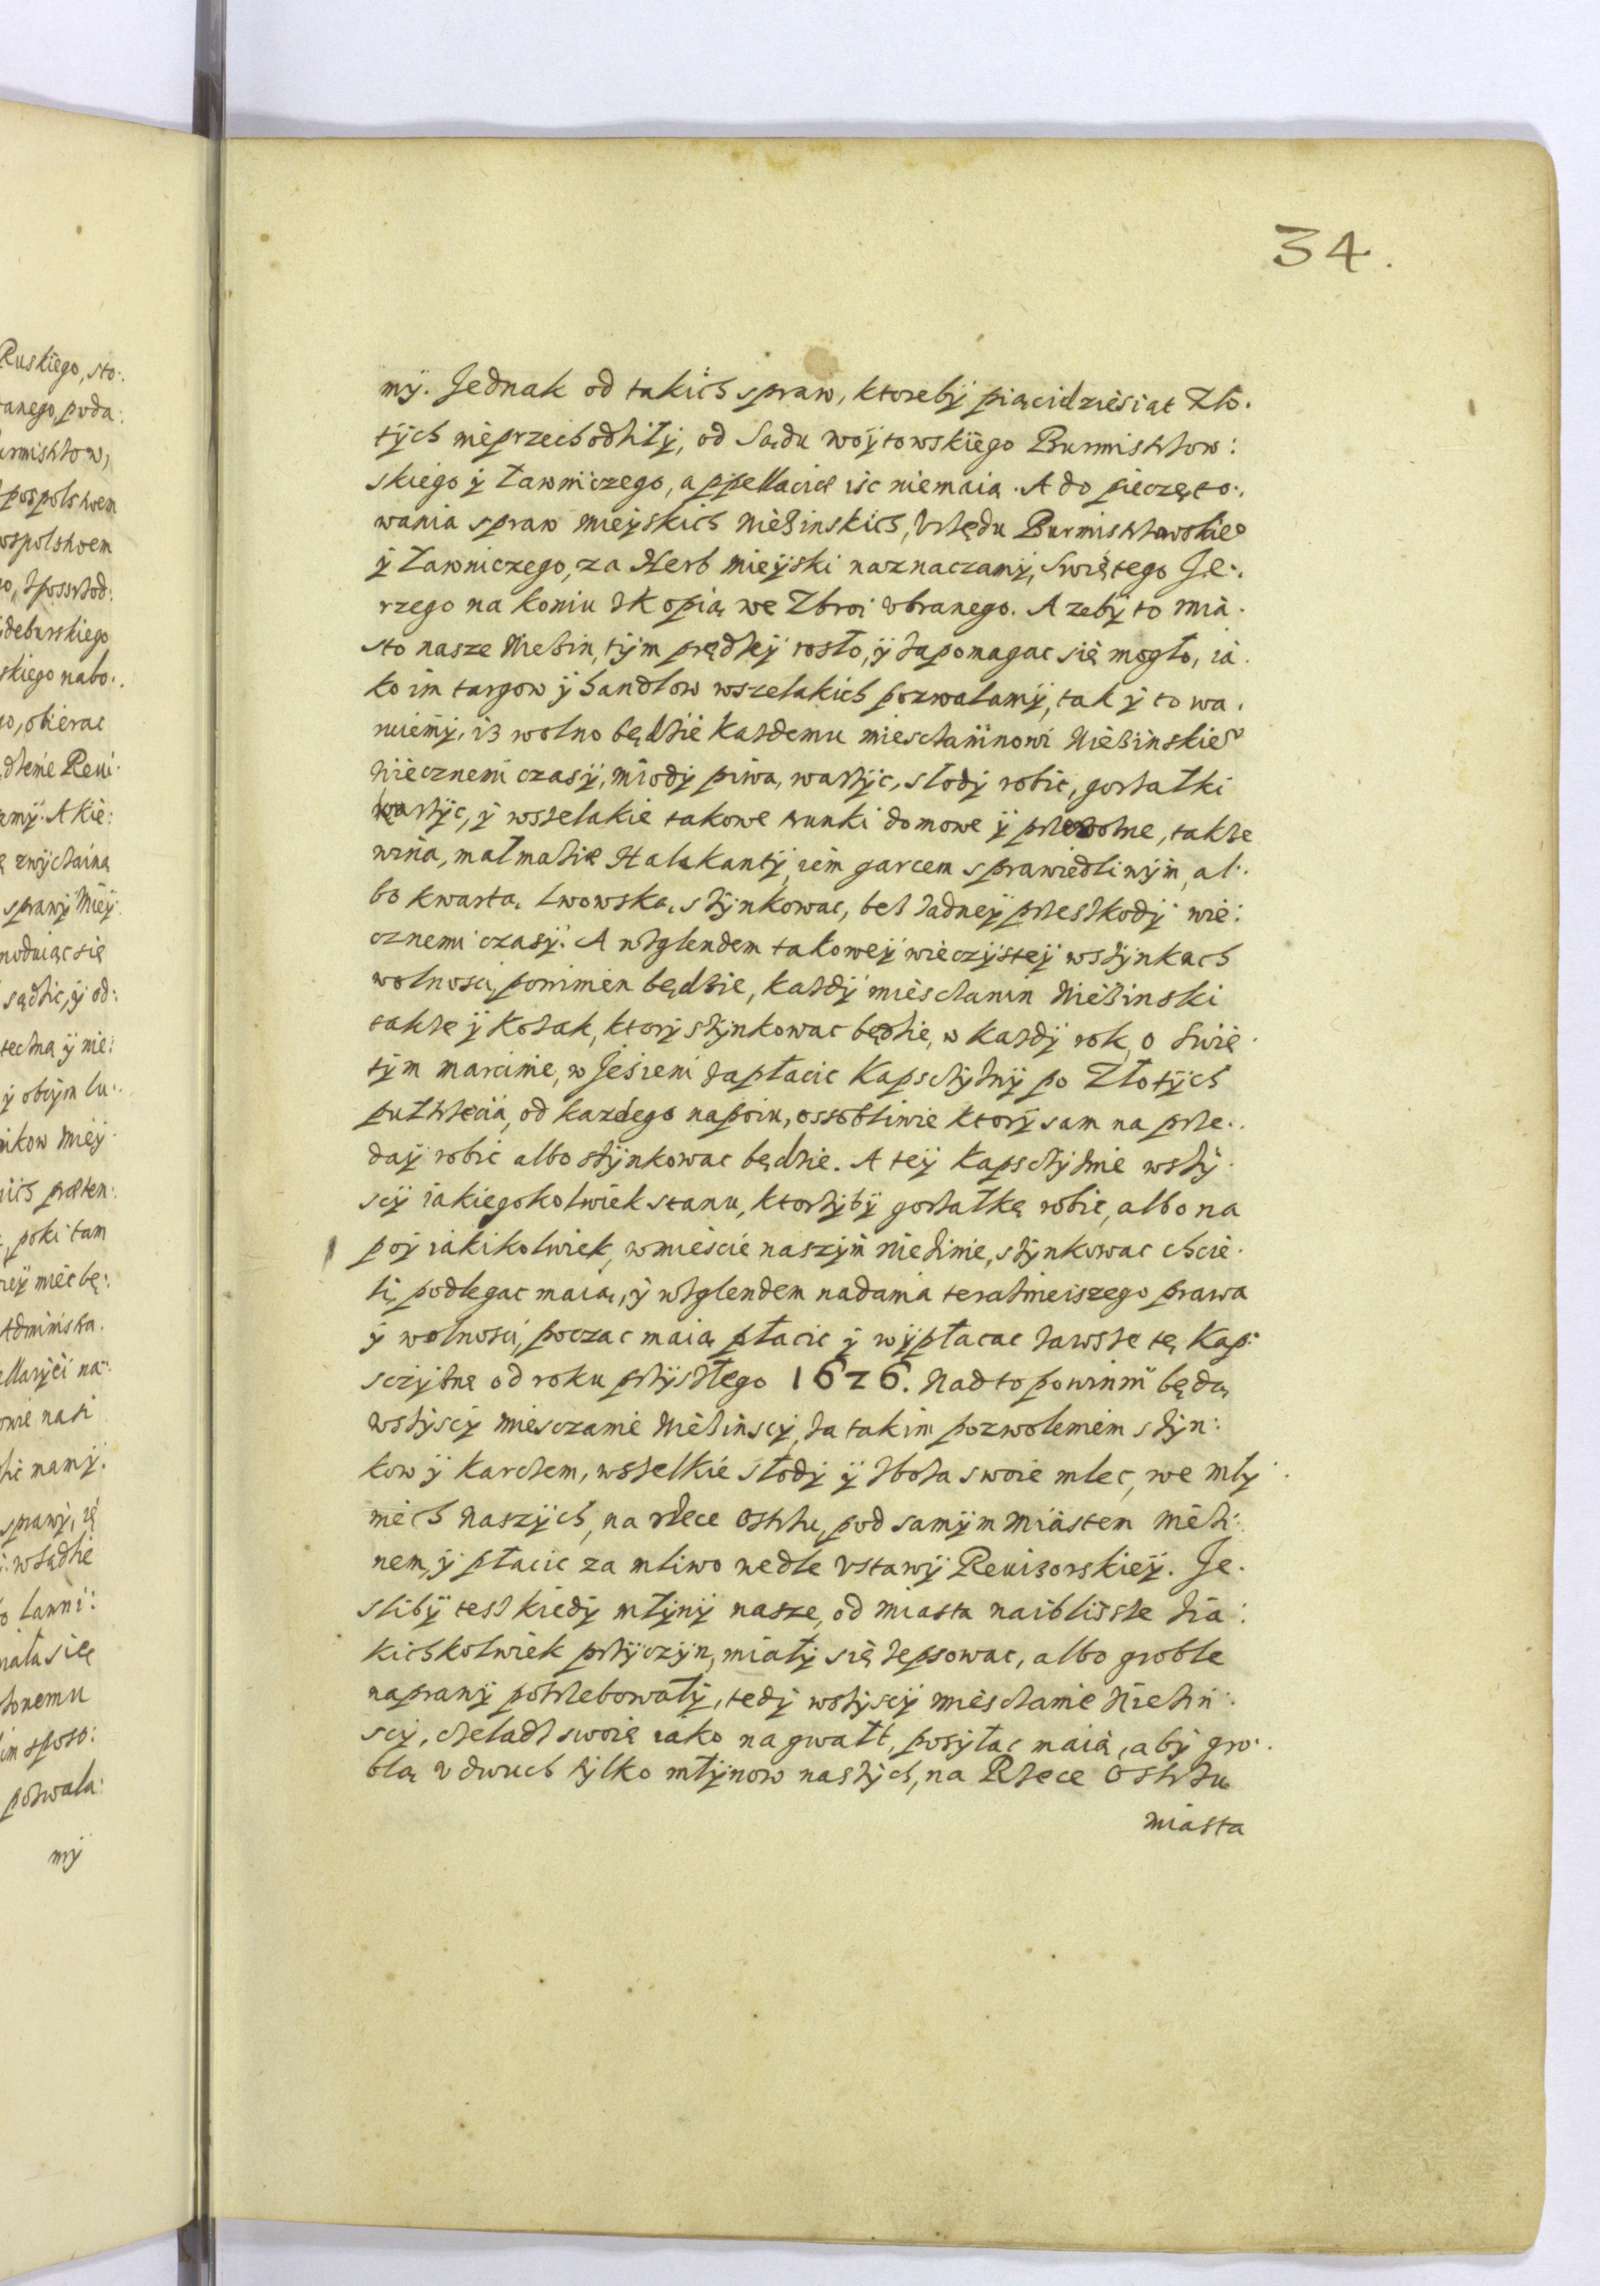 34.
Ruskiego, sto:
anego, poda:
urmistrzow,
pospolstwem
wspolstwem
skiego nabo:
go, obierac
dzenie Rewi:
amy. A kie:
ę zwyczaina
sprawy Miey:
sądzic, y od:
y obcym lu:
poki tam
iey miec bę:
Administra.
ellaryei na:
pozwala:
my
my. Jednak od takich spraw, ktoreby piącidziesiat Zło.
tych nieprzechodziły, od Sądu woytowskiego Burmistrzow:
skiego y Ławniczego, appellacie isc niemaią. A do pieczęto:
wania spraw mieyskich Nieżinskich, Vrzędu Burmistrzowskieo
y Ławniczego, za Herb mieyski naznaczamy, Swiętego Je:
rzego na koniu zkopią we Zbroi vbranego. A zeby to mia:
sto nasze Nieżin, tym prędzey rosło, y zapomagac się mogło, ia:
ko im targow y handlow wszelakich pozwalamy, tak y to wa:
ruiemy, iż wolno będzie każdemu miesczaninowi Nieżinskieo
wiecznemi czasy, miody piwa, warzyc, słody robic, gorzałki
warzyc, y wszelakie takowe trunki domowe y przewozne, takze
wina, małmazie Halakanty, iem garcem sprawiedliwym, al:
bo kwartą Lwowską, szynkowac, bez zadney przeszkody wie:
cznemi czasy. A wzglendem takowey wieczystey wszynkach
wolnosci, powinien będzie, każdy miesczanin Nieżinski
takze y Kozak, ktory szynkowac będzie, w każdy rok, o Swię:
tym Marcinie, w Jesieni zapłacic Kapsczyzny po Złotych
pułtrzecia, od kazdego napoiu, ossobliwie ktory sam na prze:
day robic albo szynkowac będzie. A tey Kapsczyznie wszy:
scy iakiegokolwiek stanu, ktorzyby gorzałkę robic, albo na
poy iakikolwiek, wmiescie naszym Nieżinie, szynkowac chcie:
li, podlegac maią, y wzglendem nadania teraznieiszego prawa
y wolnosci, poczac maią płacic y wypłacac zawsze tę Kap:
sczyznę od roku przyszłego 1626. Nadto powinni będą
wszyscy miesczanie Nieżinscy, za takim pozwoleniem szyn:
kow y karczem, wszelkie słody y zboża swoie mlec, we mły:
niech naszych, na rzece Ostrzu, pod samym miastem Nieżi:
nem, y płacic za mliwo wedle Vstawy Rewizorskiey. Je:
sliby tesz kiedy młyny nasze, od miasta naiblissze zia:
kichkolwiek przyczyn, miały się zepsowac, albo groble
naprawy potrzebowały, tedy wszyscy miesczanie Nieżin:
scy, czeladz swoię iako na gwałt, posyłac maią, aby gro:
blą v dwuch tylko młynow naszych, na Rzece Ostrzu
miasta